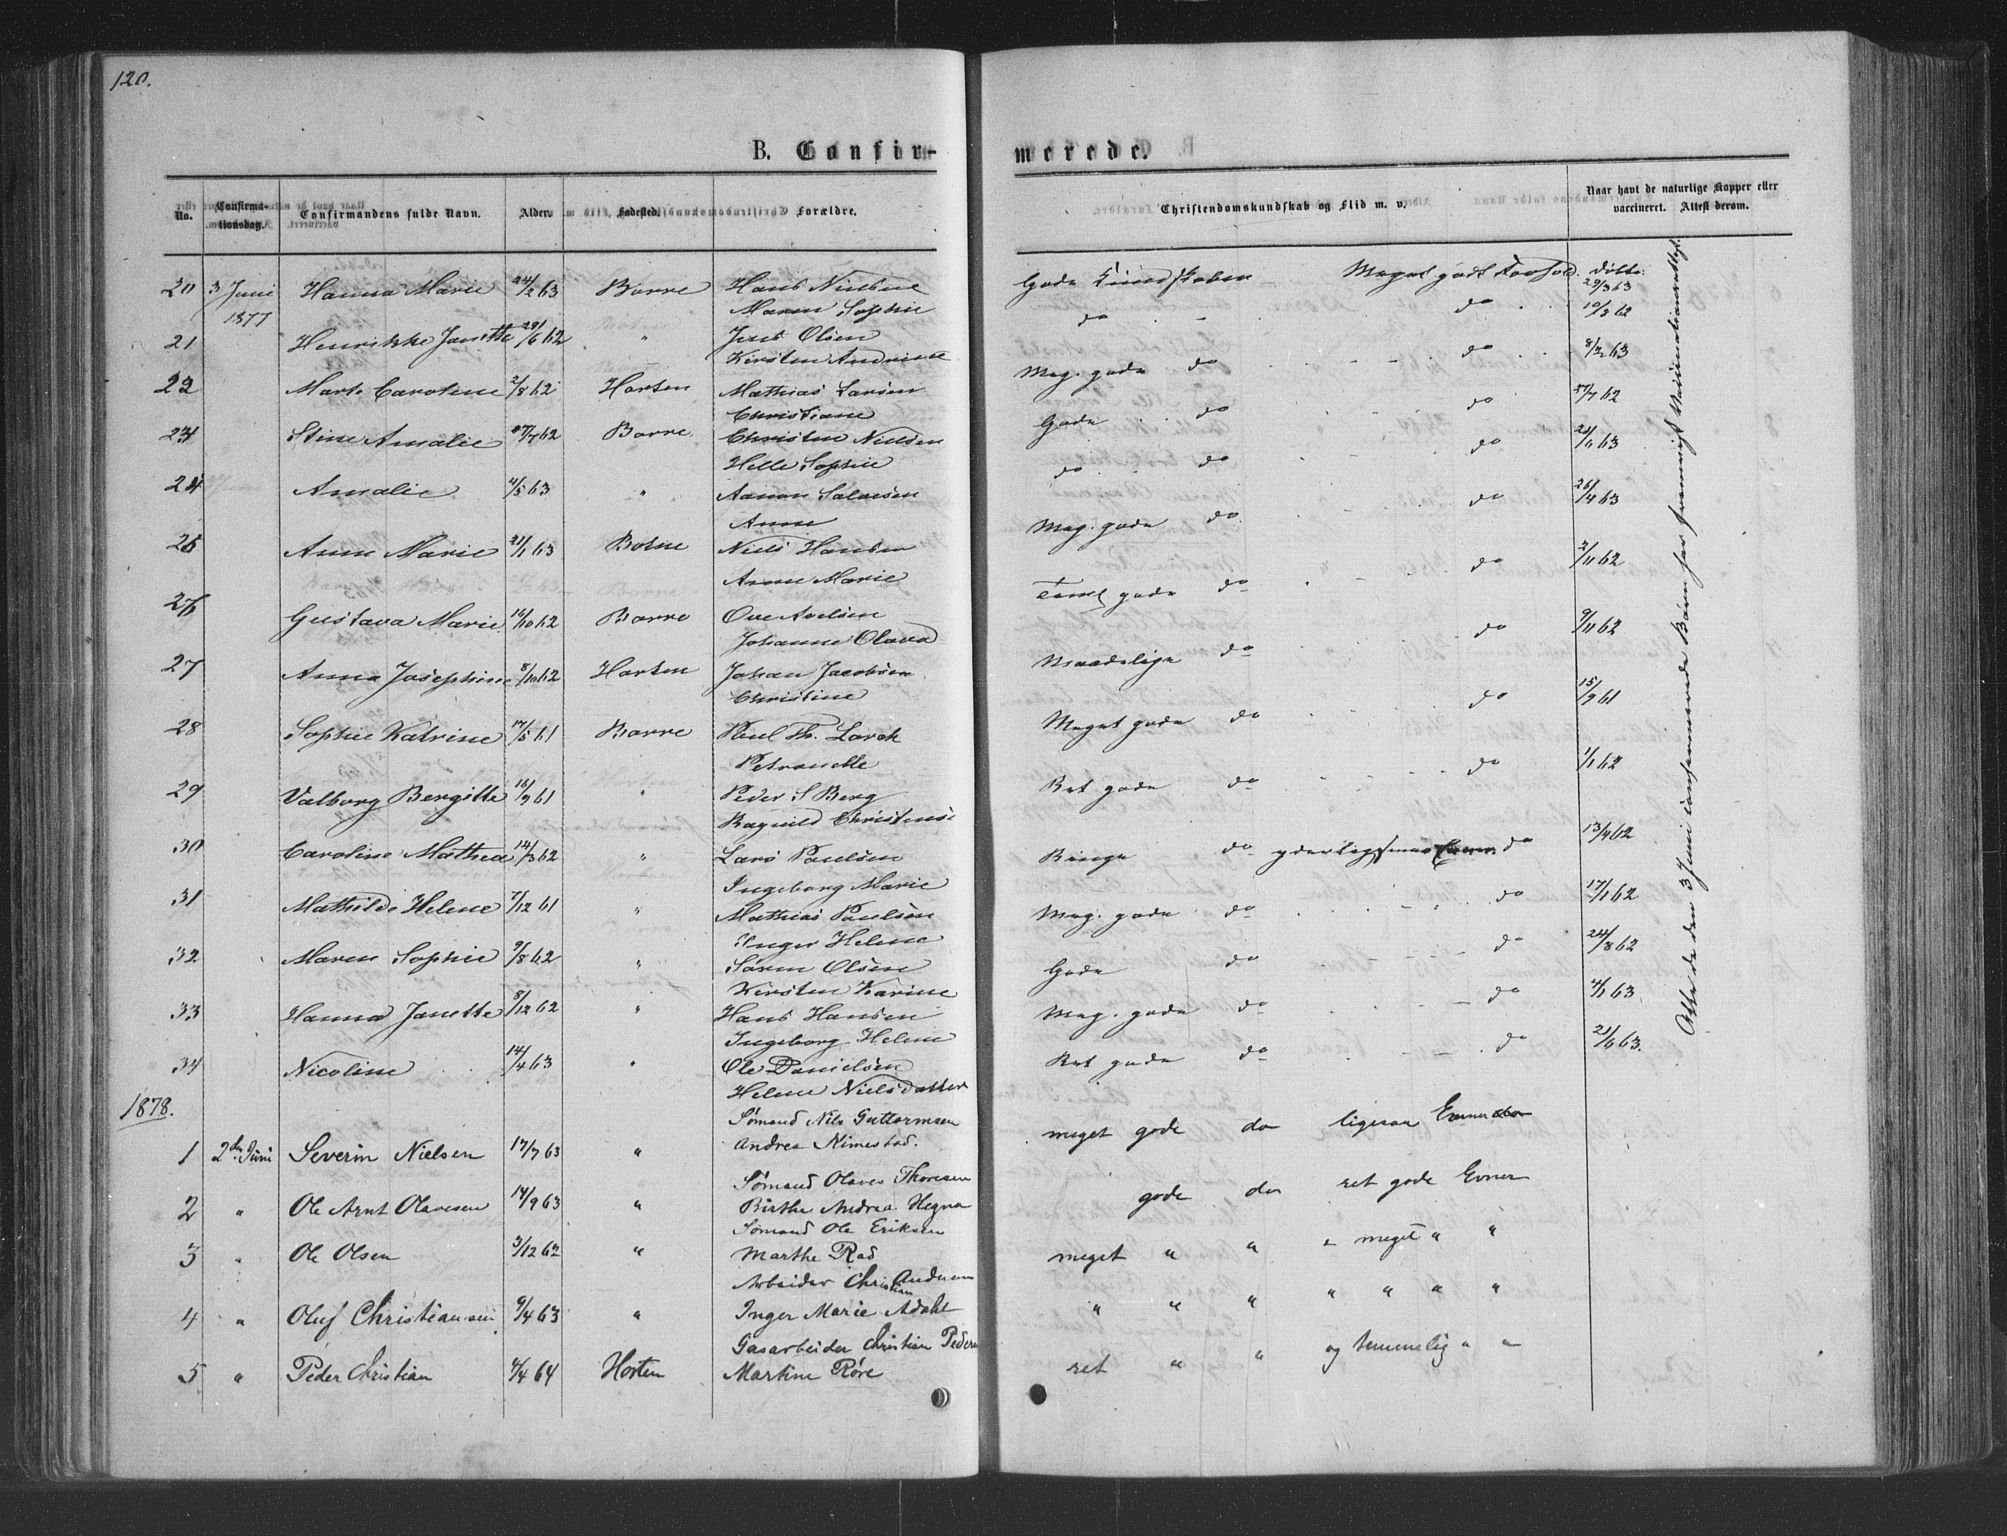 120.
B. Confir-
merede.
No.
Confirma-
tionsdag.
Confirmandens fulde Navn.
Alder.
Fødested.
Forældre.
Christendomskundskab og Flid m. v.
Naar havt de naturlige Kopper eller
vaccineret. Attest derom.
20 3 Juni Hanna Marie 24/2 63 Borre Hans Nielsen Gode Kundskaber Meget godt Forhold. 29/3 63
1877 Maren Sophie
21 Henrikke Janette 29/6 62 " Jens Olsen do - do 10/3 62
Kirsten Andrine
22 Marte Carotine 2/8 62 Horten Mathias Larsen Meg. gode do do 8/2 63
Christiane
23 Stine Amalie 27/7 62 Borre Christen Nielsen Gode do do 27/7 62
Helle Sophie
24 Amalie 4/5 63 " Aanon Salvesen do do do 21/6 63
Anne
25 Anne Marie 21/1 63 Botne Niels Hansen Meg. gode do do 26/4 63
Anne Marie
26 Gustava Marie 16/10 62 Borre Ove Axelsen Teml gode do do 2/11 62
Johanne Olava
27 Anna Josephine 8/10 62 Horten Johan Jacobsen Maadelige do do 9/11 62
Christine
28 Sophie Katrine 17/5 61 Borre Paul Th. Lorck Meget gode do do 15/9 61
Petronelle
29 Valborg Bergitte 16/9 61 " Peder S Berg Ret gode do do 1/1 62
Ragnild Christense
30 Caroline Mathea 14/3 62 " Lars Paulsen Ringe do do 13/4 62
Ingeborg Marie
31 Mathilde Helene 7/12 61 " Mathias Paulsen Meg. gode do do 17/1 62
Inger Helene
32 Maren Sophie 9/8 62 " Søren Olsen Gode do do 24/8 62
Kirsten Karine
33 Hanna Janette 8/12 62 " Hans Hansen Meg. gode do do 4/1 63
Ingeborg Helene
34 Nicoline 14/4 63 " Ole Danielsen Ret gode do do 21/6 63.
Helene Nielsdatter
Atte de den 3 Juni confirmerede Børn har
1878.
Sømand Nils Guttormsen
1 2den Juni Severin Nielsen 17/7 63 " Andrea Nimestad. meget gode do ligesaa Evner
Sømand Olaves Thoresen
2 " Ole Arnt Olavesen 14/9 63 " Birthe Andrea Hegna gode do ret gode Evner
Sømand Ole Eriksen
3 " Ole Olsen 3/12 62 " Marthe Rød meget " " " meget " "
Arbeider Christian Andersen
4 " Oluf Christiansen 9/4 63 " Inger Marie Adahl " " " " " " "
Gasarbeider Christian Peders
5 " Peder Christian 4/4 64 Horten Martine Røre ret " " og temmelig " "